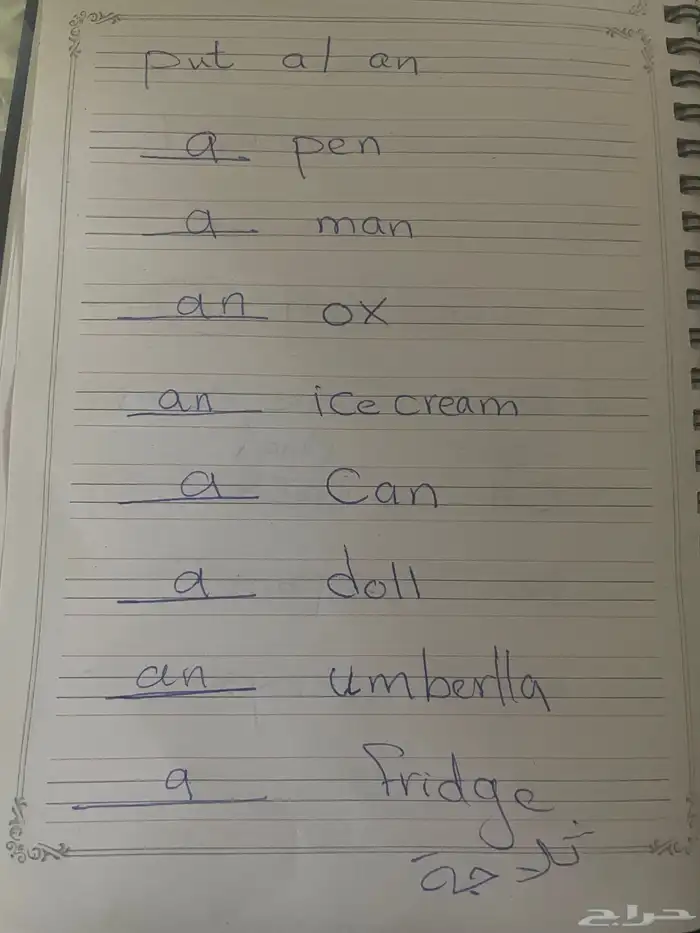 put a/ an
a pen
a man
an ox
an ice cream
a Can
a doll
an umberlla
a fridge
ثلاجة
حراج